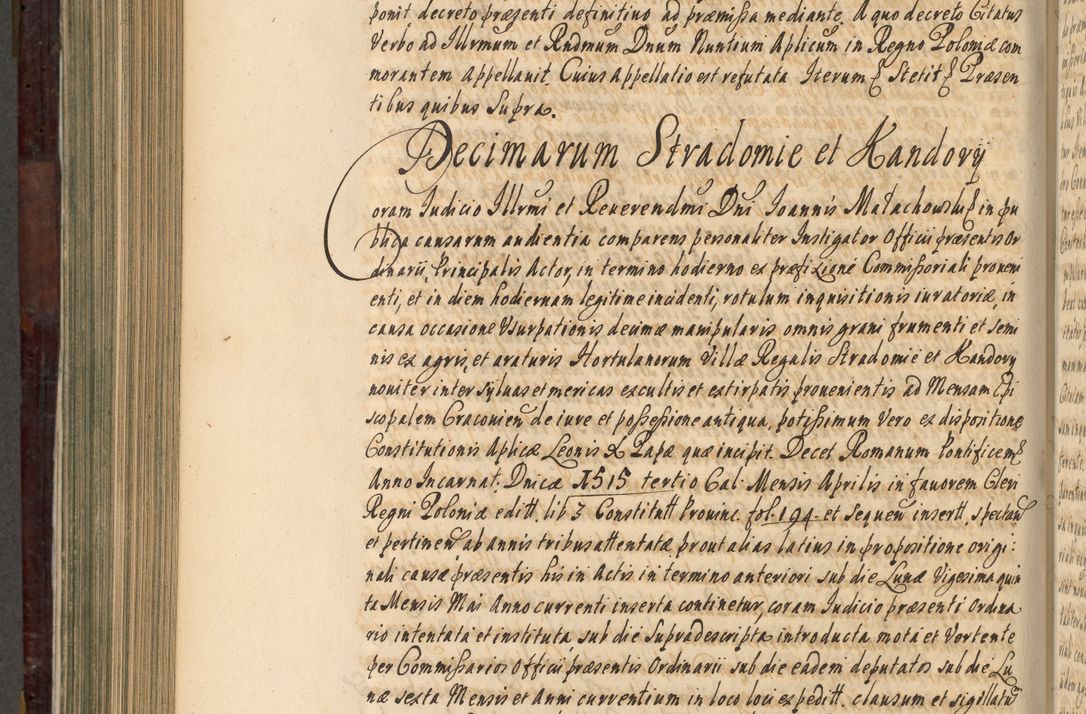 ponit decreto præsenti definitiuo ad præmissa mediante. A quo decreto Citatus
Verbo ad Illrmum et Rndmum Dnum Nuntium Aplicum in Regno Poloniæ com
morantem Appellauit. Cuius Appellatio est refutata Iterum Stetit Præsen
tibus quibus Supra.
Decimarum Stradomie et Kandory
Coram Judicio Illrmi et Reuerendmi Dni Joannis Małachowski in pu
blica causarum audientia comparens personaliter Instigator Officii præsentis Or
dinarii, Principalis Actor, in termino hodierno ex præfixione Commissoriali proueni
enti, et in diem hodiernam legitime incidenti, rotulum inquisitionis iuratoriæ, in
causa occasione Vsurpationis decimæ manipularis omnis grani frumenti et semi
nis ex agris, et araturis Hortulanorum Villæ Regalis Stradomie et Kandory
nouiter inter syluas et mericas excultis et extirpatis prouenientis ad Mensam Epi
scopalem Cracouien de iure et possessione antiqua, potissimum Vero ex dispositione
Constitutionis Aplicæ Leonis X Papæ quæ incipit. Decet Romanum Pontificem
Anno Incarnat. Dnicæ 1515 tertio Cal. Mensis Aprilis in fauorem Cleri
Regni Poloniæ editt. lib 3 Constitutt Prouinc. fol. 194 et sequen insertt. spectan
et pertinen ab annis tribus attentatæ prout alias latius in propositione origi:
nali causæ præsentis his in Actis in termino anteriori sub die Lunæ Vigesima quin
ta Mensis Mai Anno currenti inserta continetur, coram Judicio præsenti Ordina
rio intentata et instituta, sub die Supradescripta introducta mota et Vertente
per Commissarios Officii præsentis Ordinarii sub die eadem deputatos sub die Lu
næ sexta Mensis et Anni currentium in loco loci expeditt. clausum et sigillatu